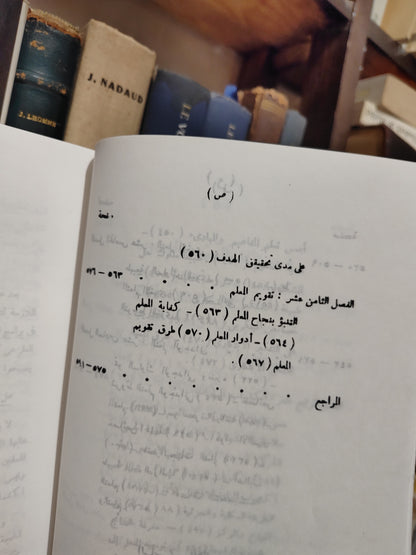 J. LHOMME
J. NADAUD
( ص )
صفحة
على مدى تحقيق الهدف ( ٥٦٠ )
الفصل الثامن عشر : تقويم المعلم . . . . ٥٦٣ – ٥٧٦
التنبؤ بنجاح المعلم ( ٥٦٣ ) – كفاية المعلم
( ٥٦٤ ) – أدوار المعلم ( ٥٧٠ ) طرق تقويم
المعلم ( ٥٦٧ ) .
المراجع . . . . . . . .